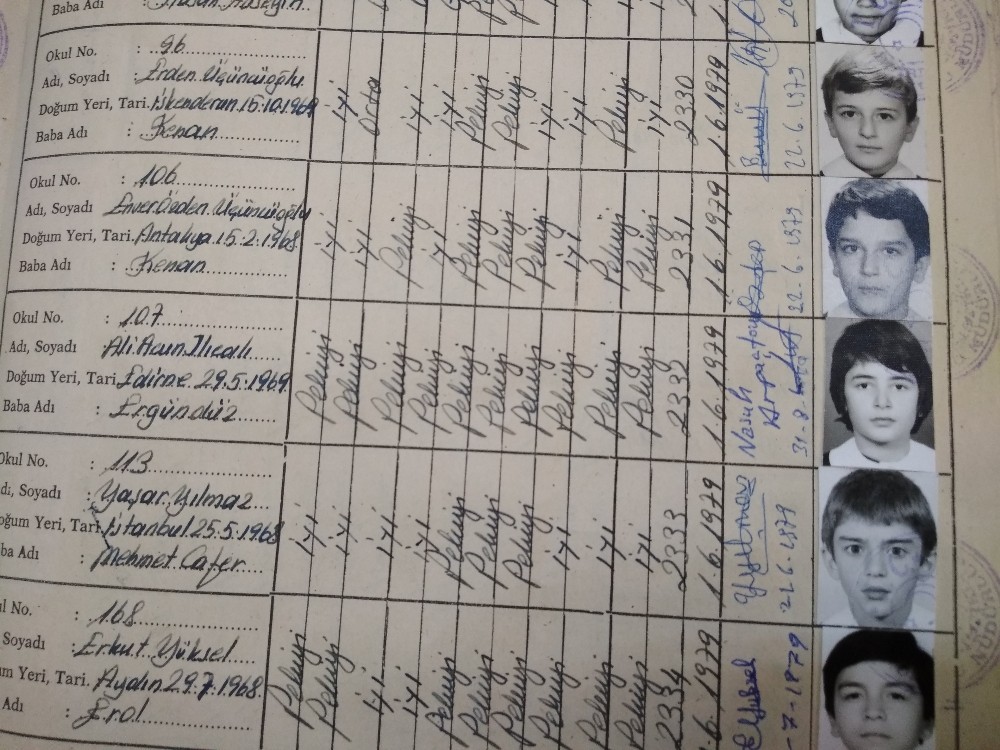 Baba Adı : Hasan Hüseyin
Okul No. : 96
Adı, Soyadı : Erden Üçüncüoğlu
Doğum Yeri, Tari. İskenderun 15.10.1969
Baba Adı : Kenan
iyi Orta iyi iyi Pekiyi Pekiyi iyi iyi Pekiyi iyi 2330 1.6.1979
22.6.1979
Okul No. : 106
Adı, Soyadı Enver Erden Üçüncüoğlu
Doğum Yeri, Tari. Antakya 15.2.1968
Baba Adı : Kenan
iyi iyi Pekiyi iyi Pekiyi Pekiyi Pekiyi iyi Pekiyi Pekiyi 2331 1.6.1979
22.6.1979
Okul No. : 107
Adı, Soyadı Ali Acun Ilıcalı
Doğum Yeri, Tari. Edirne 29.5.1969
Baba Adı : Ergündüz
Pekiyi Pekiyi Pekiyi Pekiyi Pekiyi Pekiyi Pekiyi Pekiyi Pekiyi Pekiyi 2332 1.6.1979
Nasuh
Okul No. : 113
Adı, Soyadı : Yaşar Yılmaz
Doğum Yeri, Tari. İstanbul 25.5.1968
Baba Adı : Mehmet Cafer
iyi iyi iyi iyi Pekiyi Pekiyi Pekiyi iyi iyi iyi 2333 1.6.1979
21.6.1979
ul No. : 168
Soyadı : Erkut Yüksel
um Yeri, Tari. Aydın 29.7.1968
Adı : Erol
Pekiyi Pekiyi iyi iyi Pekiyi Pekiyi Pekiyi Pekiyi Pekiyi Pekiyi 2334 6.1979
7-1979